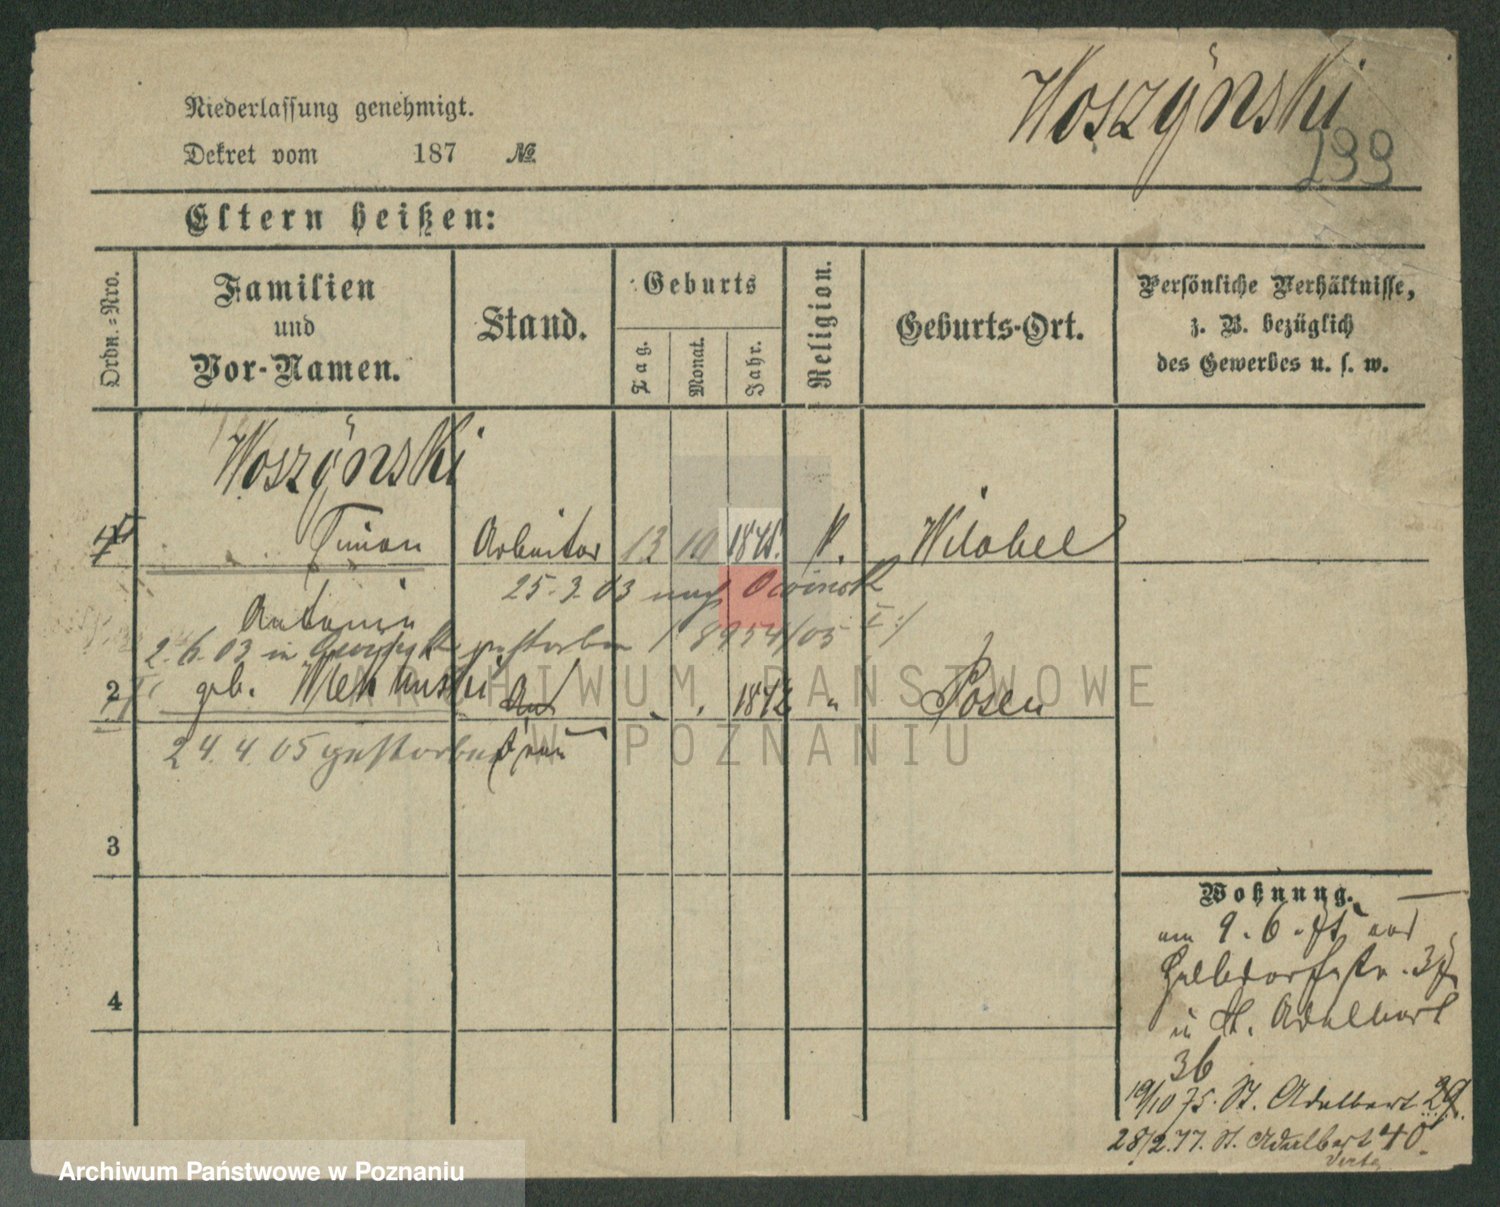 Woszÿnski
Niederlassung genehmigt.
199
Dekret vom 187 №
Eltern heißen:
Ordn.=Nro.
Familien
und
Vor-Namen.
Stand.
Geburts
Tag.
Monat.
Jahr.
Religion.
Geburts-Ort.
Persönliche Verhältnisse,
z. B. bezüglich
des Gewerbes u. s. w.
Woszÿnski
Simon Arbeiter 13 10 1845. k.
25.3.03 nach Owinsk
Antonie
2.6.03 in gestorben / 8954/05
2 geb. 1842 " Posen
24.4.05 gestorben Frau
3
4
Wohnung.
am 9.6. von
Halbdorfstr.
in St. Adalbert
36
19/10 75. St. Adalbert 29.
28/2.77. St. Adalbert 40.
ARCHIWUM PAŃSTWOWE
W POZNANIU
Archiwum Państwowe w Poznaniu